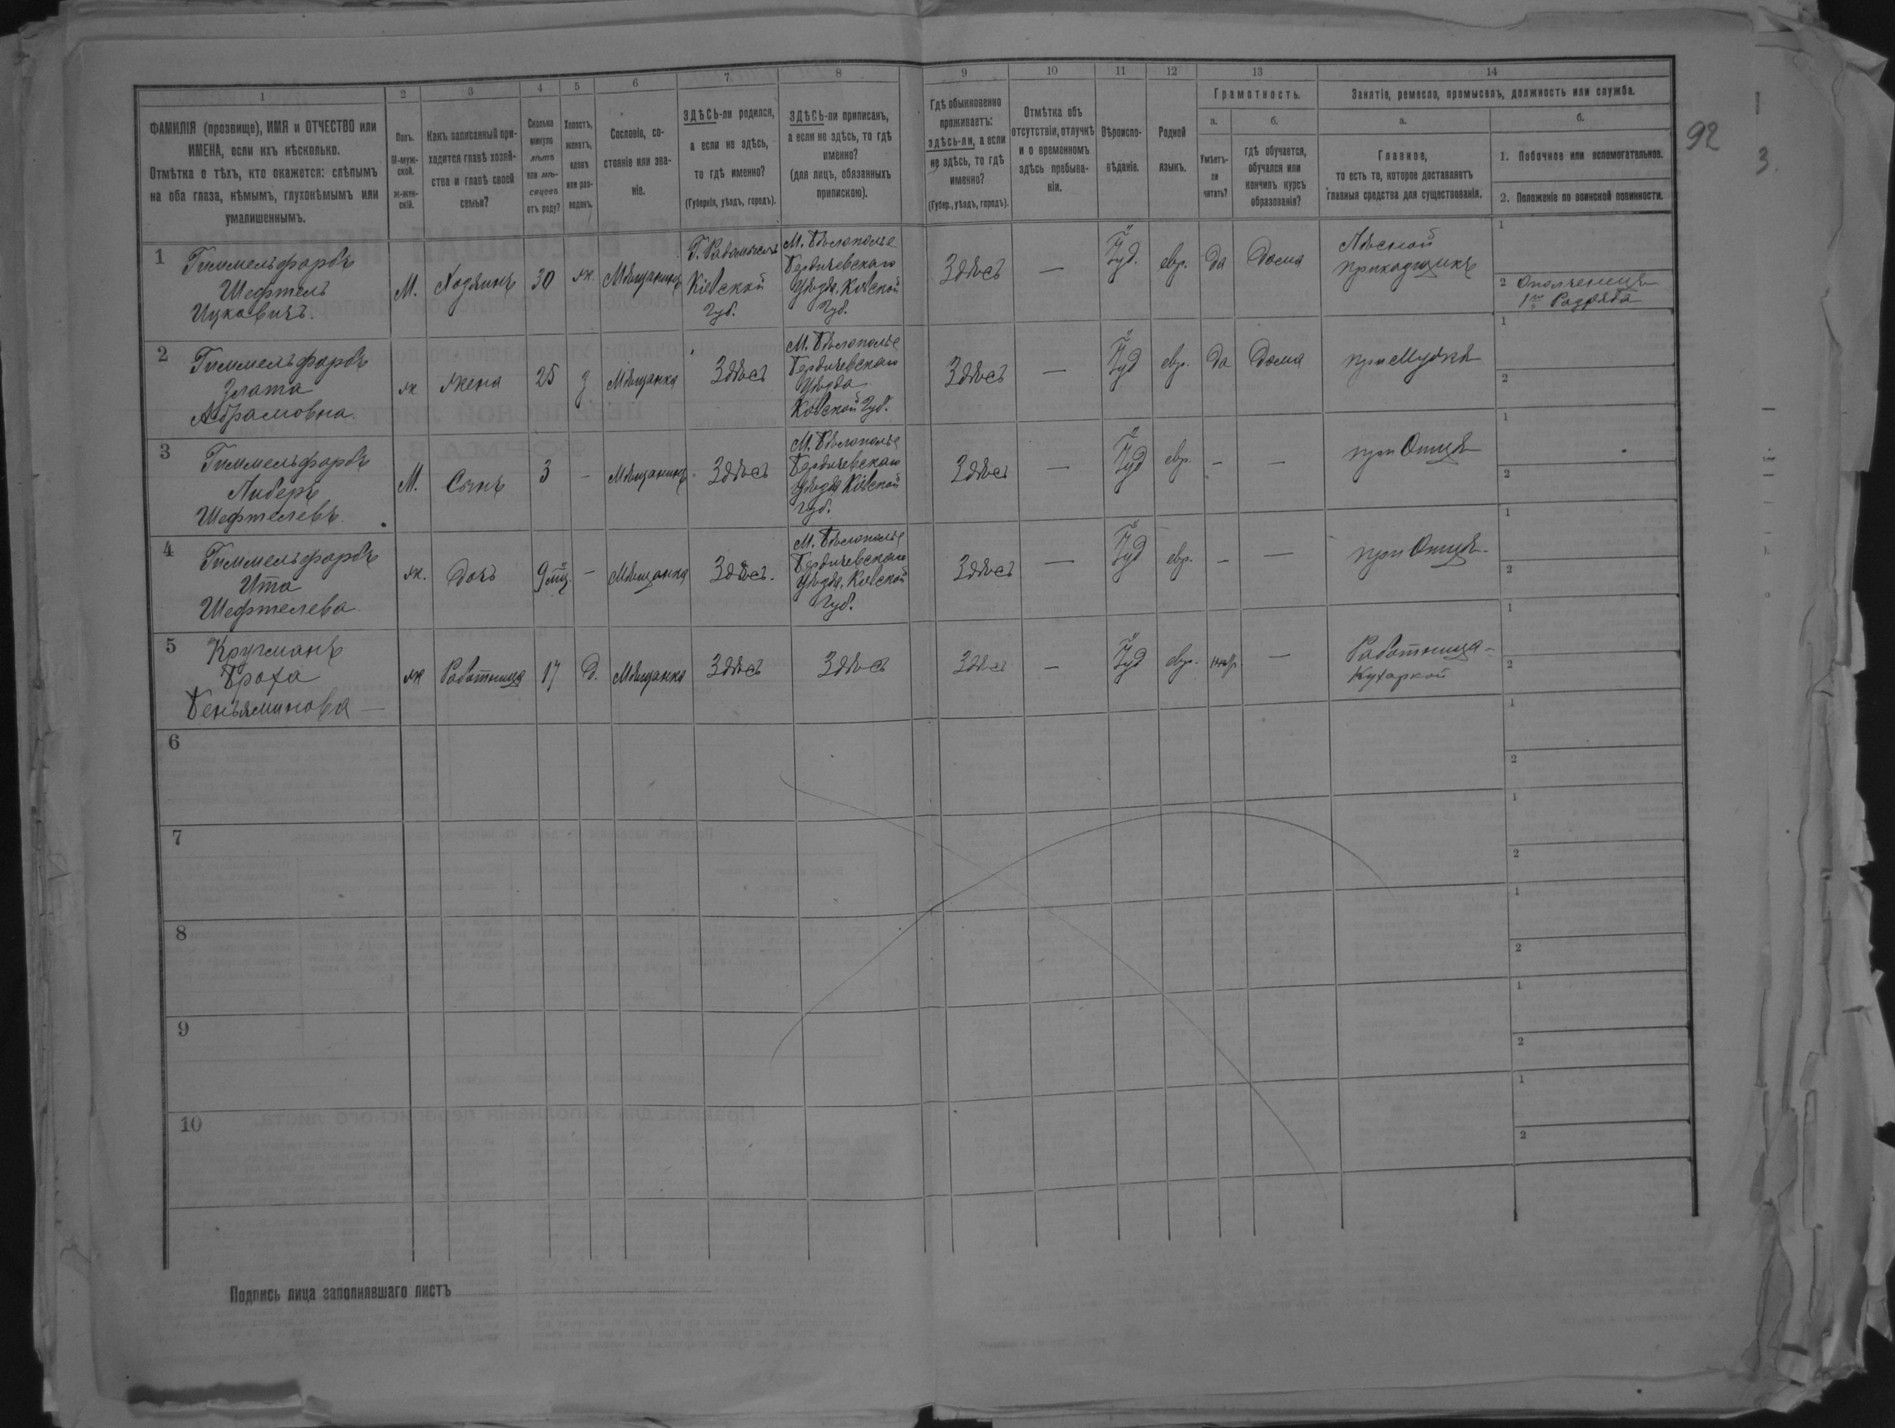 92
3.
1 2 3 4 5 6 7 8 9 10 11 12 13 14
ФАМИЛІЯ (прозвище), ИМЯ и ОТЧЕСТВО или
ИМЕНА, если ихъ нѣсколько.
Отмѣтка о тѣхъ, кто окажется: слѣпымъ
на оба глаза, нѣмымъ, глухонѣмымъ или
умалишеннымъ.
Полъ.
М-муж-
ской.
Ж-жен-
скій.
Какъ записанный при-
ходится главѣ хозяй-
ства и главѣ своей
семьи?
Сколько
минуло
лѣтъ
или мѣ-
сяцевъ
отъ роду?
Холостъ,
женатъ,
вдовъ
или раз-
веденъ.
Сословіе, со-
стояніе или зва-
ніе.
ЗДѢСЬ-ли родился,
а если не здѣсь,
то гдѣ именно?
(Губернія, уѣздъ, городъ).
ЗДѢСЬ-ли приписанъ,
а если не здѣсь, то гдѣ
именно?
(для лицъ, обязанныхъ
припискою).
Гдѣ обыкновенно
проживаетъ:
здѣсь-ли, а если
не здѣсь, то гдѣ
именно?
(Губер., уѣздъ, городъ).
Отмѣтка объ
отсутствіи, отлучкѣ
и о временномъ
здѣсь пребыва-
ніи.
Вѣроиспо-
вѣданіе.
Родной
языкъ.
Грамотность.
а.
Умѣетъ-
ли
читать?
б.
гдѣ обучается,
обучался или
кончилъ курсъ
образованія?
Занятіе, ремесло, промыселъ, должность или служба.
а.
Главное,
то есть то, которое доставляетъ
главныя средства для существованія.
б.
1. Побочное или вспомогательное.
2. Положеніе по воинской повинности.
1
Гиммельфарбъ
Шефтель
Ицковичъ.
М.
Хозяинъ
30
ж.
Мѣщанинъ
Г. Радомысль
Кіевской
Губ.
М. Бѣлополье
Бердичевскаго
Уѣзда, Кіевской
Губ.
Здѣсь
—
Іуд.
евр.
да
Дома
Лѣсной
прикащикъ
1
2 Ополченецъ
1го Разряда
2
Гиммельфарбъ
Злата
Абрамовна
ж
жена
25
З
Мѣщанка
Здѣсь
М. Бѣлополье
Бердичевскаго
Уѣзда
Кіевской Губ.
Здѣсь
—
Іуд
евр.
да
Дома
при Мужѣ
1
2
3
Гиммельфарбъ
Либеръ
Шефтелевъ
М.
Сынъ
3
—
Мѣщанинъ
Здѣсь
М. Бѣлополье
Бердичевскаго
Уѣзда Кіевской
Губ.
Здѣсь
—
Іуд
евр.
—
—
при Отцѣ
1
2
4
Гиммельфарбъ
Ита
Шефтелева
ж.
Дочь
9 мц
—
Мѣщанка
Здѣсь.
М. Бѣлополье
Бердичевскаго
Уѣзда, Кіевской
Губ.
Здѣсь
—
Іуд
евр.
—
—
при Отцѣ.
1
2
5
Кругманъ
Броха
Беньяминова —
ж
Работница
17
Д.
Мѣщанка
Здѣсь
Здѣсь
Здѣсь
—
Іуд
евр.
—
Работница-
Кухаркой
1
2
6
1
2
7
1
2
8
1
2
9
1
2
10
1
2
Подпись лица заполнявшаго листъ